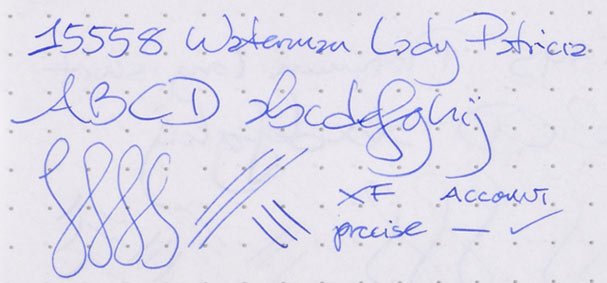 15558 Waterman Lady Patricia
ABCD abcdefghij
XF Account
precise — ✓